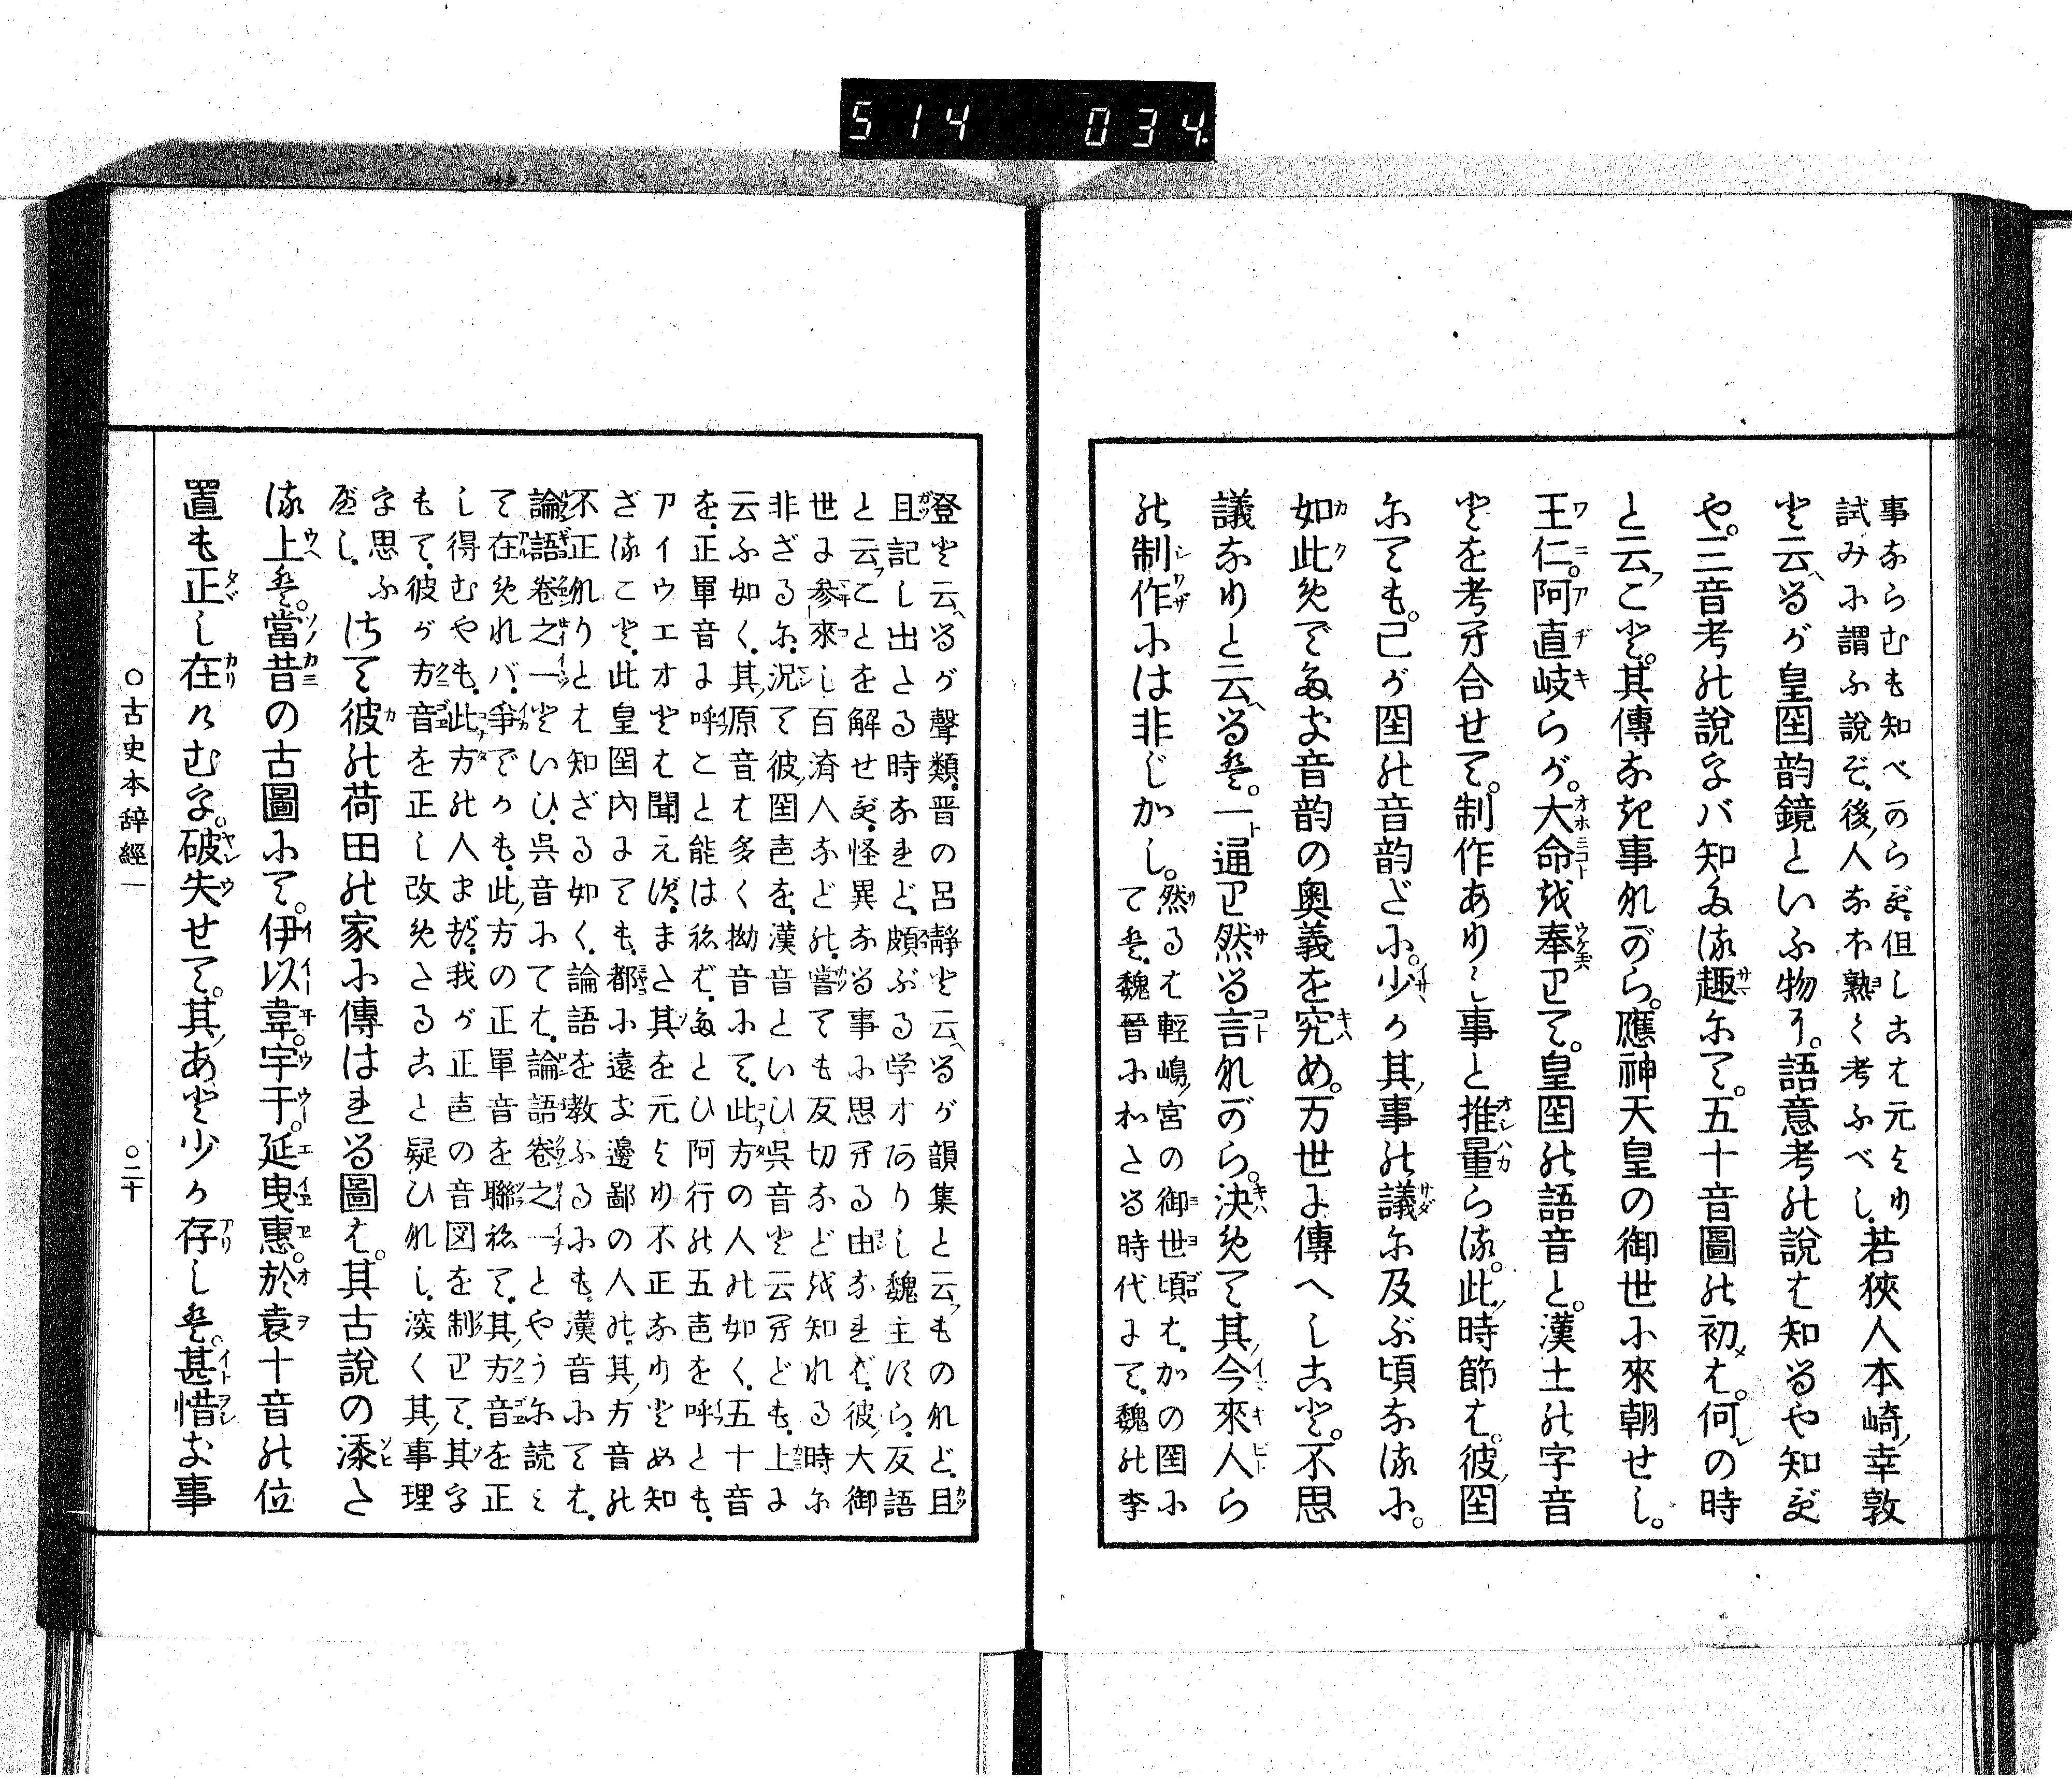 514 034.
事ならむも知べからず。但しこは元より
試みに謂ふ說ぞ。後人なほ熟く考ふべし。
若狹人本崎幸敦
と云るが皇国韵鏡といふ物に。語意考の說は知るや知ずや。
三音考の說をバ知たる趣にて。五十音圖の初は。何の時
と云こと。其傳なき事ながら。應神天皇の御世に來朝せし。
王仁。阿直岐らが。大命を奉りて。皇国の語音と。漢土の字音
とを考ヘ合せて。制作ありし事と推量らる。此時節は。彼国
にても。己が国の音韵ざに。少か其事の議に及ぶ頃なるに。
如此めでたき音韵の奧義を究め。万世に傳へしこと。不思
議なりと云るは。一通り然る言ながら。決めて其今來人ら
の制作には非じかし。
然るは輕嶋宮の御世頃は。かの国に
ては。魏晉にわたる時代にて。魏の李
登と云るが聲類。晋の呂靜と云るが韻集と云ものれど。且
且記し出たる時なれど。頗ぶる学才ありし魏主すら。反語
と云ことを解せず。怪異なる事に思へる由なれば。彼大御
世に參來し百済人などの。嘗ても反切などを知れる時に
非ざるに。况て彼国音を。漢音といひ呉音と云へども。上に
云ふ如く。其原音は多く拗音にて。此方の人の如く。五十音
を。正單音に呼こと能はねば。たとひ阿行の五音を呼とも。
アイウエオとは聞えず。また其を元より不正なりとめ知
ざること。此皇国内にても。都に遠き邊鄙の人の。其方音の
不正れりとは知ざる如く。論語を教ふるにも。漢音にては。
論語卷之一といひ。呉音にては。論語卷之一とやうに読ミ
て在めれバ。爭でかも。此方の正單音を聯ねて。其方音を正
し得むやも。此方の人まづ。我が正音の音図を制りて。其字
もて。彼が方音を正し改めたること疑ひれし。深く其事理
を思ふ
べし。
さて彼の荷田の家に傳はれる圖は。其古說の添た
る上は。當昔の古圖にて。伊以韋。宇于。延曳惠。於袁十音の位
置も正し在けむを。破失せて。其あと少か存しは。甚惜き事
○古史本辞經一
○二十